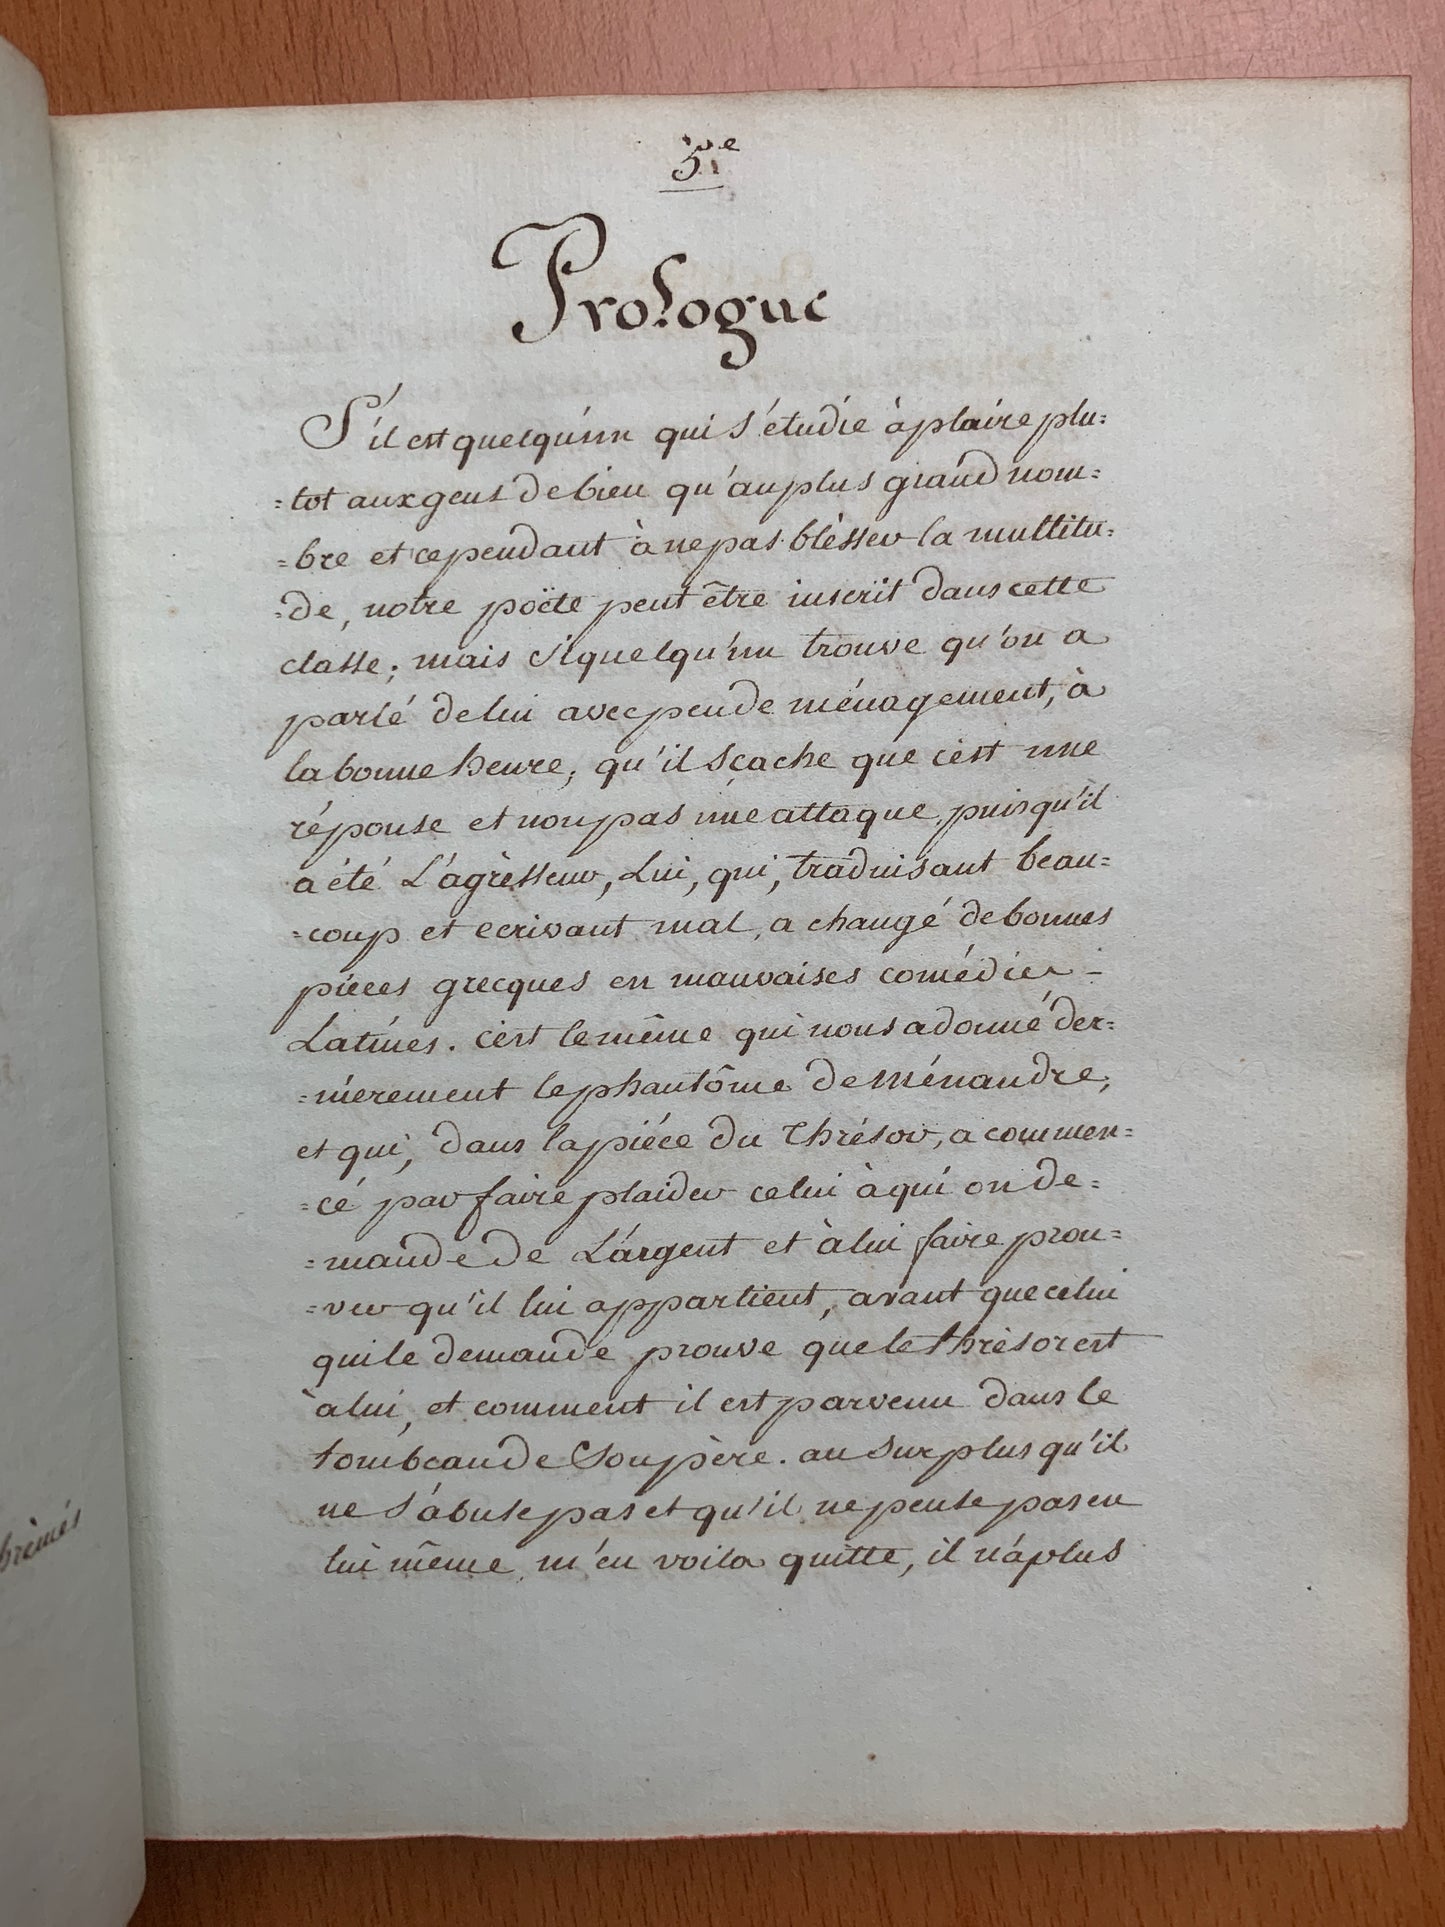 5.e
Prologue
S'il est quelqu'un qui s'étudie à plaire plu=
=tot aux gens de bien qu'au plus grand nom=
=bre et cependant à ne pas blésser la multitu=
=de, notre poëte peut être inscrit dans cette
classe; mais si quelqu'un trouve qu'on a
parlé de lui avec peu de ménagement, à
la bonne heure, qu'il sçache que c'est une
réponse et non pas une attaque, puisqu'il
a été L'agrèsseur, Lui, qui, traduisant beau=
=coup et ecrivant mal, a changé de bonnes
pieces grecques en mauvaises comédies -
Latines. c'est le même qui nous a donné der=
=nierement le phantôme de Ménandre,
et qui, dans la piéce du Thrésor, a commen=
=cé par faire plaider celui à qui on de=
=mande de L'argent et à lui faire prou=
=ver qu'il lui appartient, avant que celui
qui le demande prouve que le thrèsor est
à lui, et comment il est parvenu dans le
tombeau de Son père. au surplus qu'il
ne s'abuse pas et qu'il ne pense pas en
lui même, m'en voila quitte, il n'a plus
brimés